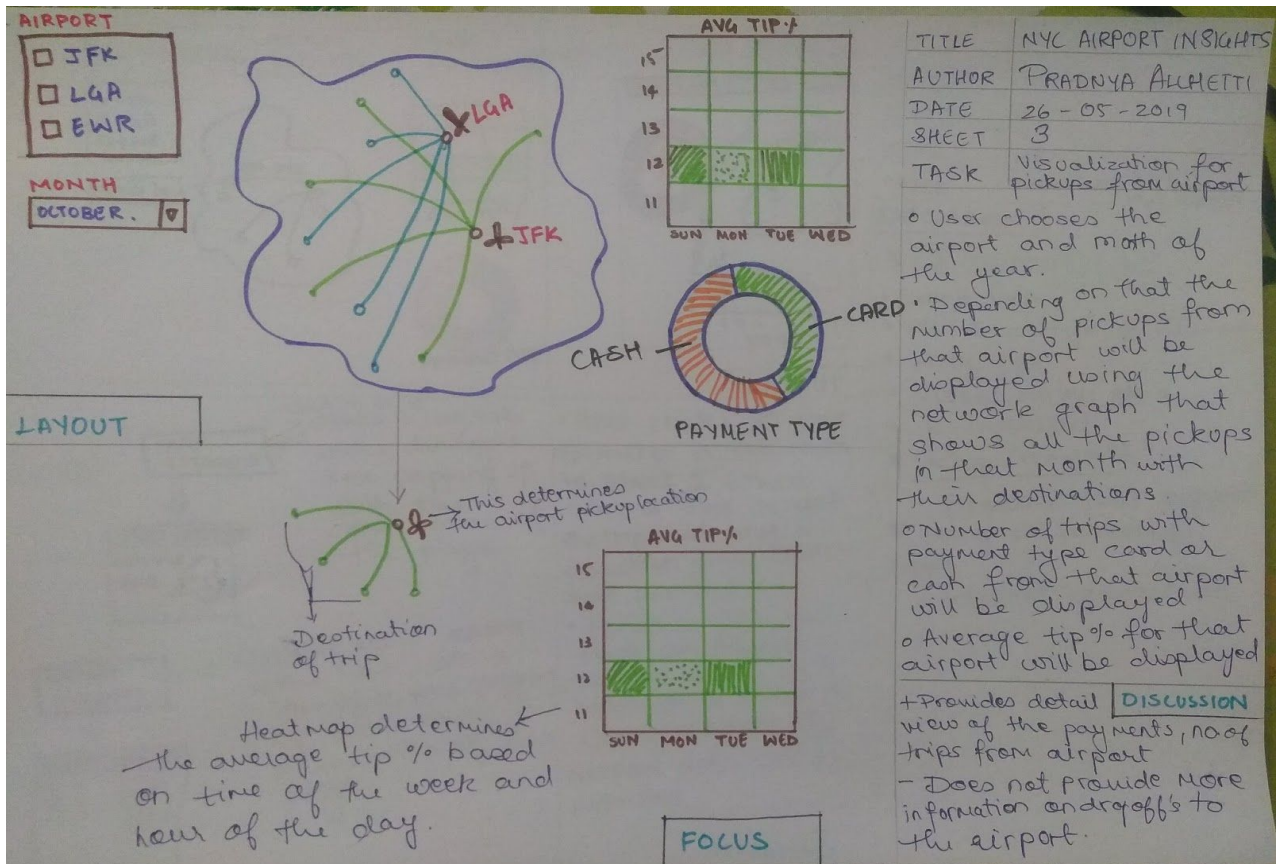 AIRPORT
JFK
LGA
EWR
MONTH
OCTOBER.
LGA
JFK
AVG TIP%
15
14
13
12
11
SUN MON TUE WED
CARD
CASH
PAYMENT TYPE
LAYOUT
This determines
the airport pickup location
Destination
of trip
AVG TIP%
15
14
13
12
11
SUN MON TUE WED
Heatmap determines
the average tip % based
on time of the week and
hour of the day.
FOCUS
TITLE NYC AIRPORT INSIGHTS
AUTHOR PRADNYA ALCHETTI
DATE 26-05-2019
SHEET 3
TASK Visualization for
pickups from airport
o User chooses the
airport and moth of
the year.
· Depending on that the
number of pickups from
that airport will be
displayed using the
network graph that
shows all the pickups
in that month with
their destinations.
o Number of trips with
payment type card or
cash from that airport
will be displayed
o Average tip % for that
airport will be displayed
+ Provides detail DISCUSSION
view of the payments, no of
trips from airport
- Does not provide more
information on dropoff's to
the airport.